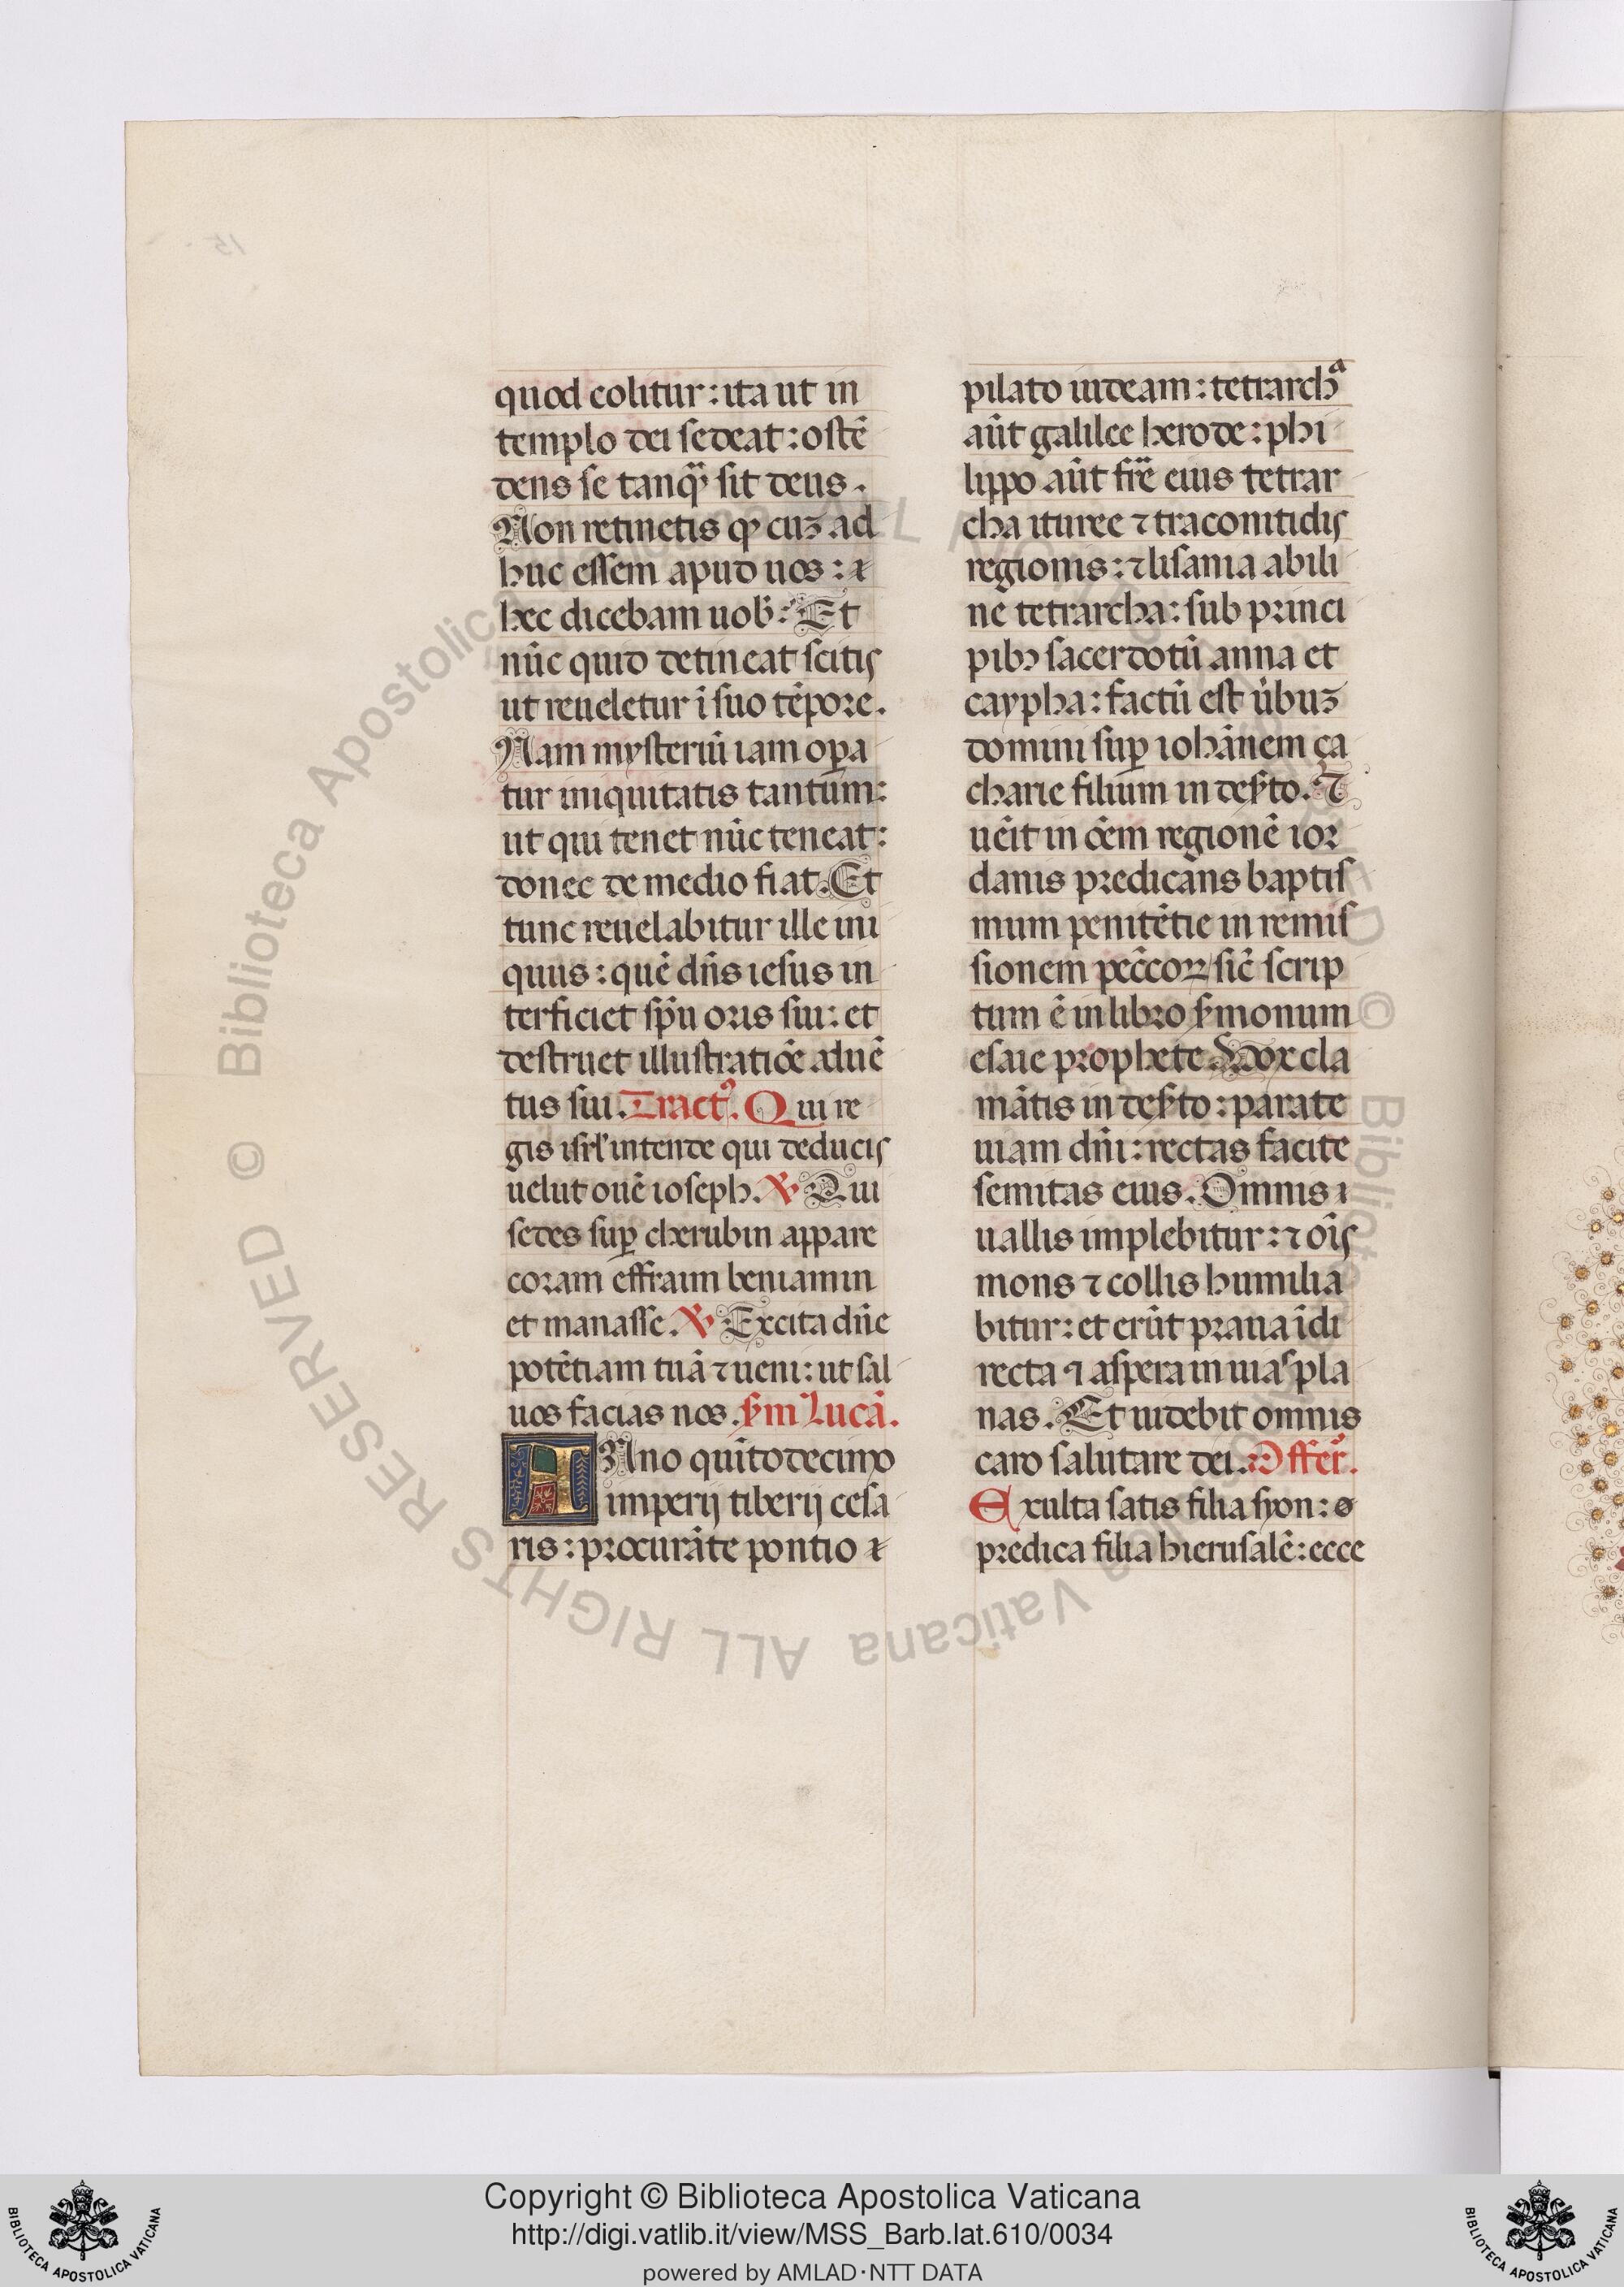 quod colitur: ita ut in
templo dei sedeat: ostē
dens se tanq̄ sit deus.
Non retinetis qp cuz ad
huc essem apud uos: ⁊
hec dicebam uob̄: Et
nūc quid detineat scitis
ut reueletur ī suo tēpore.
Nam mysteriū iam opa
tur iniquitatis tantum:
ut qui tenet nūc teneat:
donec de medio fiat. Et
tunc reuelabitur ille ini
quus: quē dn̄s iesus in
terficiet sp̄u oris sui: et
destruet illustratiōe aduē
tus sui. Tractꝰ. Qui re
gis isrl̄ intende qui deducis
uelut ouē ioseph. ℣ Qui
sedes sup cherubin appare
coram effraim beniamin
et manasse. ℣ Excita dn̄e
potētiam tuā ⁊ ueni: ut sal
uos facias nos. s̄m Lucā.
ANno quītodecimo
imperij tiberij cesa
ris: procurāte pontio
pilato iudeam: tetrarchᵃ
aūt galilee herode: phi
lippo aūt fr̄e eius tetrar
cha ituree ⁊ traconitidis
regionis: ⁊ lisania abili
ne tetrarcha: sub princi
pibꝫ sacerdotū anna et
caypha: factū est ūbuꝫ
domini sup iohānem ça
charie filium in des̄to. ⁊
uēit in ōem regionē ior
danis predicans baptis
mum penitētie in remis
sionem pec̄coꝝ sic̄ scrip
tum ē in libro s̄monum
esaie prophete Vox cla
mātis in des̄to: parate
uiam dn̄i: rectas facite
semitas eius. Omnis
uallis implebitur: ⁊ oīs
mons ⁊ collis humilia
bitur: et erūt praua ī di
recta ⁊ aspera in uias pla
nas. Et uidebit omnis
caro salutare dei. Offer̄.
Exulta satis filia syon:
predica filia hierusalē: ecce
15
© Biblioteca Apostolica Vaticana ALL RIGHTS RESERVED
© Biblioteca Apostolica Vaticana ALL RIGHTS RESERVED
Copyright © Biblioteca Apostolica Vaticana
http://digi.vatlib.it/view/MSS_Barb.lat.610/0034
powered by AMLAD·NTT DATA
BIBLIOTECA APOSTOLICA VATICANA
BIBLIOTECA APOSTOLICA VATICANA